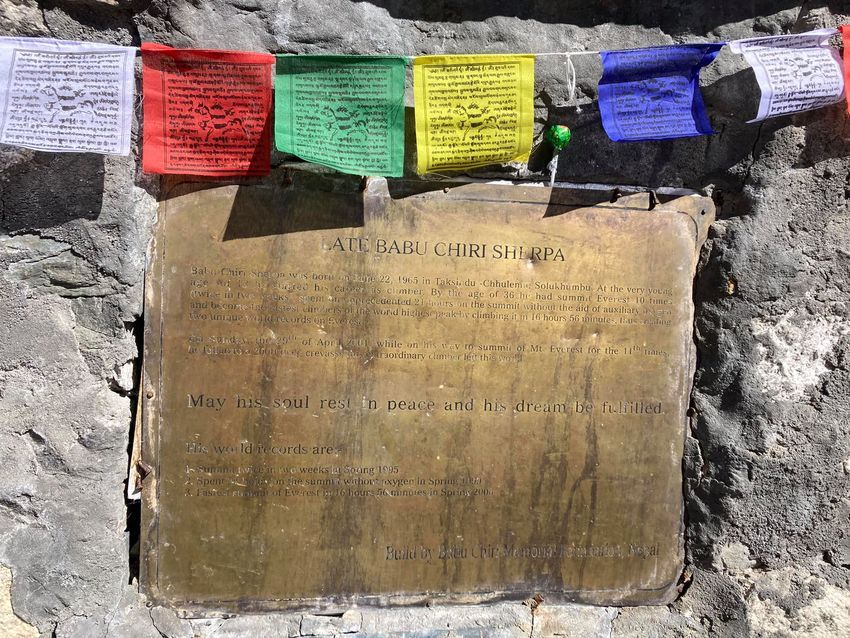 LATE BABU CHIRI SHERPA
Babu Chiri Sherpa was born on June 22, 1965 in Taksindu -Chhulemu, Solukhumbu. At the very young
age he started his career as climber. By the age of 36 he had summit Everest 10 times
(twice in two weeks), spent an unprecedented 21 hours on the summit without the aid of auxiliary oxygen
and become fastest climbers of the world highest peak by climbing it in 16 hours 56 minutes,
two unique world records on Everest.
On Sunday, the 29th of April 2001, while on his way to summit of Mt. Everest for the 11th times,
crevasse extraordinary climber left this world.
May his soul rest in peace and his dream be fulfilled.
His world records are:-
1. Summit twice in two weeks in Spring 1995
2. Spent 21 hours on the summit without oxygen in Spring 1999
3. Fastest summit of Everest in 16 hours 56 minutes in Spring 2000
Build by Babu Chiri Memorial Foundation, Nepal